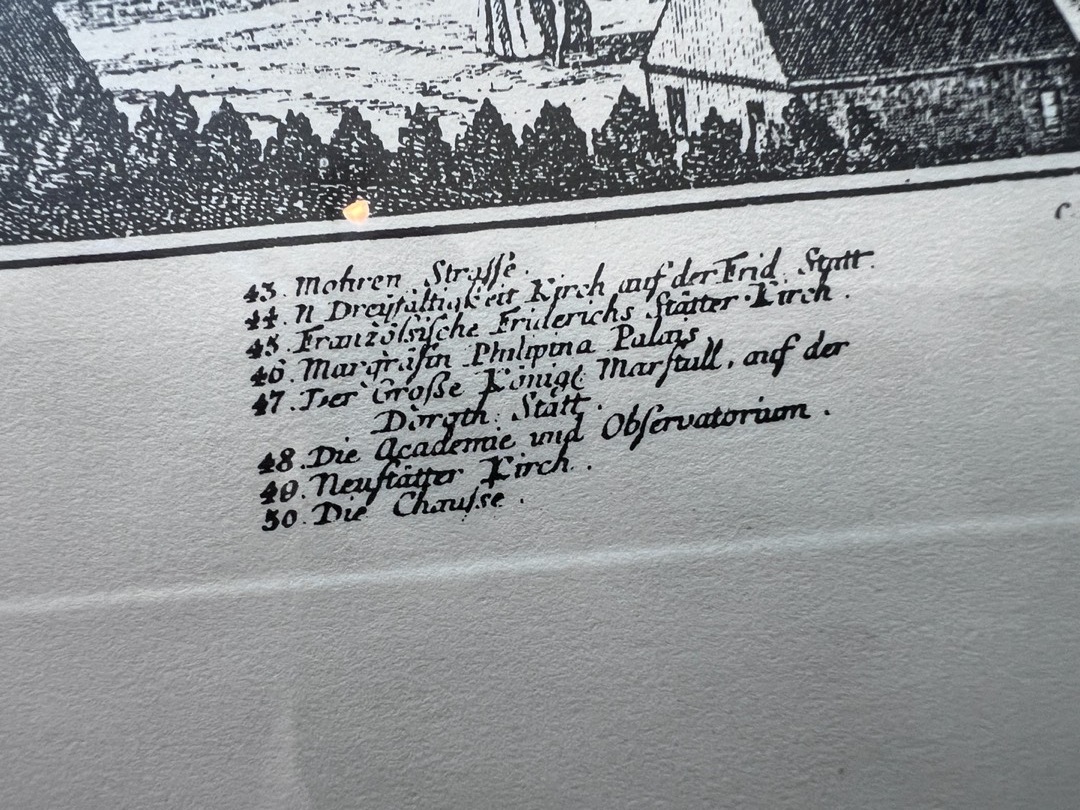 43. Mohren Strasse.
44. N Dreyfaltigkeit Kirch auf der Frid. Statt.
45. Französische Friderichs Stätter Kirch.
46. Margräfin Philipina Palais
47. Der Große Königl Marstall, auf der
Doroth: Statt.
48. Die Academie und Observatorium.
49. Neustätter Kirch.
50. Die Chausse.
C.